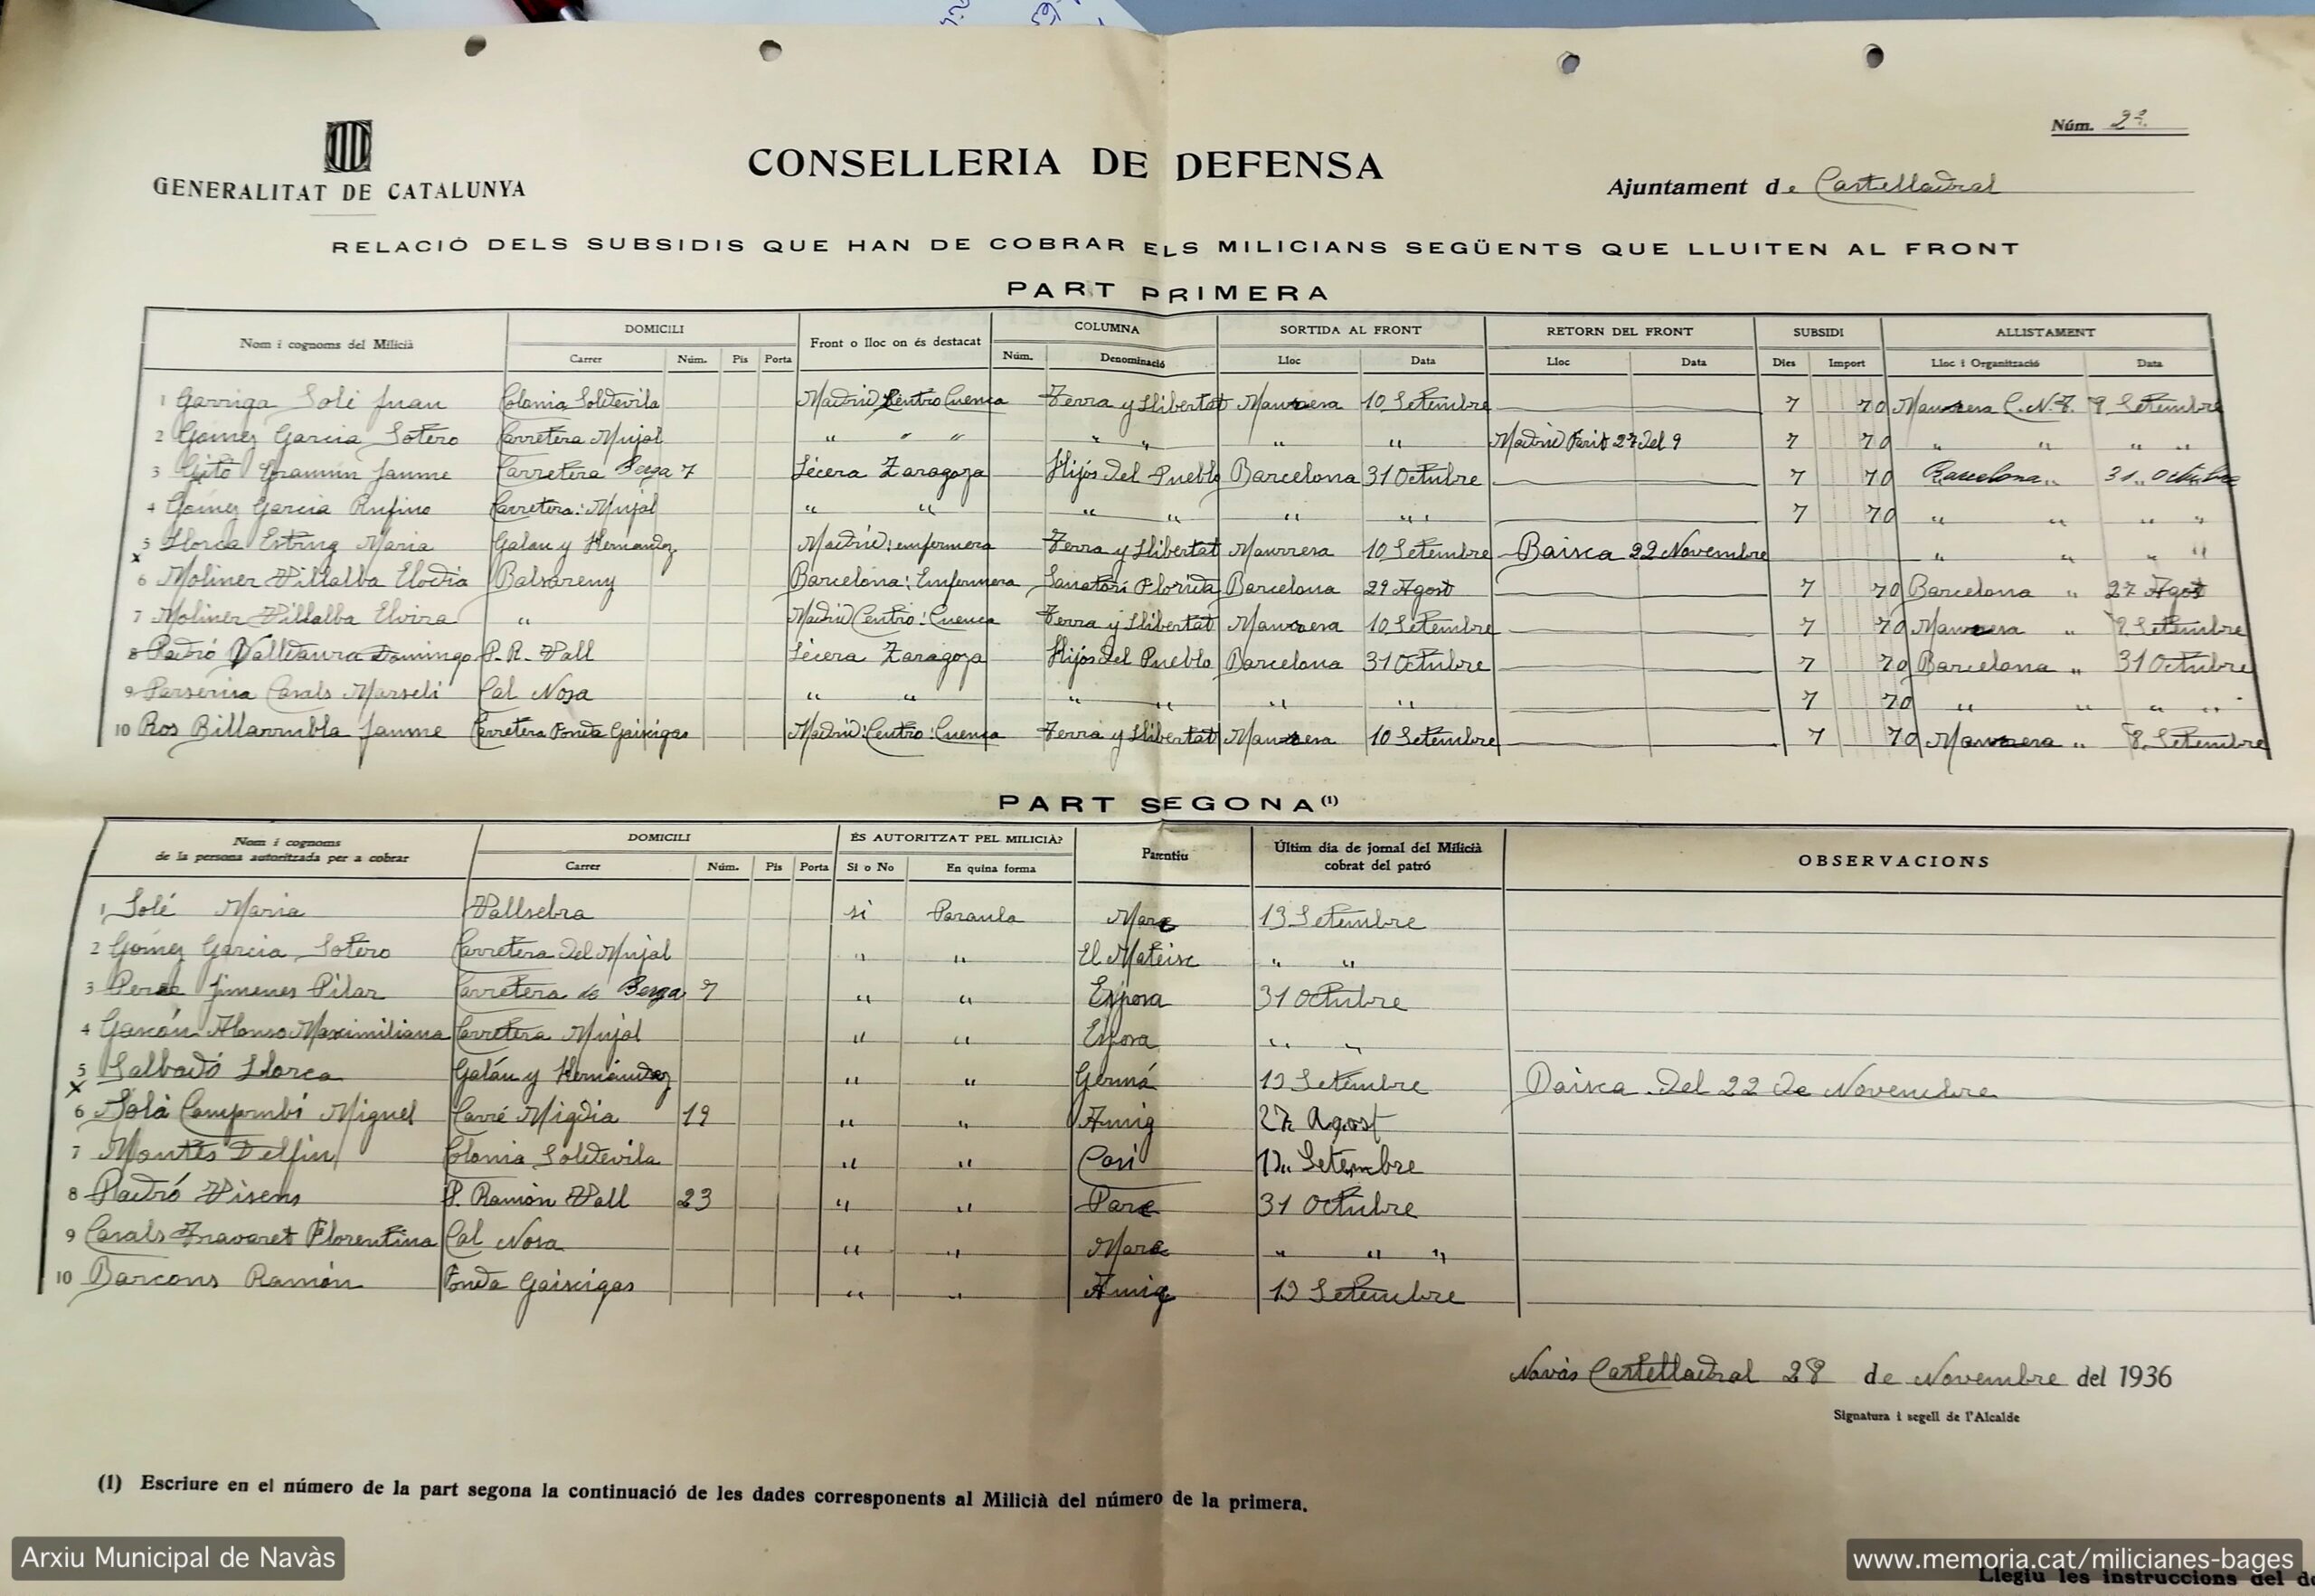 Núm. 2ª
GENERALITAT DE CATALUNYA
CONSELLERIA DE DEFENSA
Ajuntament de Castelladral
RELACIÓ DELS SUBSIDIS QUE HAN DE COBRAR ELS MILICIANS SEGÜENTS QUE LLUITEN AL FRONT
PART PRIMERA
Nom i cognoms del Milicià DOMICILI Front o lloc on és destacat COLUMNA SORTIDA AL FRONT RETORN DEL FRONT SUBSIDI ALLISTAMENT
Carrer Núm. Pis Porta Núm. Denominació Lloc Data Lloc Data Dies Import Lloc i Organització Data
1 Garriga Solé Juan Colonia Soldevila Madrid Centro Cuenca Terra y Llibertat Manresa 10 Setembre 7 70 Manresa C.N.T. 9 Setembre
2 Gómez Garcia Sotero Carretera Mujal " " " " " " " Madrid Ferit 27 del 9 7 70 " " " "
3 Jaume Carretera Berga 7 Lécera Zaragoza Hijos del Pueblo Barcelona 31 Octubre 7 70 Barcelona " 31 Octubre
4 Gómez Garcia Rufino Carretera: Mujal " " " " " " " 7 70 " " " "
x 5 Llorca Maria Galan y Hernandez Madrid: enfermera Terra y Llibertat Manresa 10 Setembre Baisca 22 Novembre " " " "
6 Moliner Villalba Elodia Balsareny Barcelona: Enfermera Sanatori Florida Barcelona 29 Agost 7 70 Barcelona " 27 Agost
7 Moliner Villalba Elvira " Madrid Centro: Cuenca Terra y Llibertat Manresa 10 Setembre 7 70 Manresa " 9 Setembre
8 Padró Valldaura Domingo P. R. Vall Lécera Zaragoza Hijos del Pueblo Barcelona 31 Octubre 7 70 Barcelona " 31 Octubre
9 Casals Marseli Cal Nosa " " " " " " 7 70 " " " "
10 Ros Jaume Carretera Fonda Madrid: Centro: Cuenca Terra y Llibertat Manresa 10 Setembre 7 70 Manresa " 8 Setembre
PART SEGONA (1)
Nom i cognoms de la persona autoritzada per a cobrar DOMICILI ÉS AUTORITZAT PEL MILICIÀ? Parentiu Últim dia de jornal del Milicià cobrat del patró OBSERVACIONS
Carrer Núm. Pis Porta Si o No En quina forma
1 Solé Maria Vallsebra si Paraula Mare 13 Setembre
2 Gómez Garcia Sotero Carretera del Mujal " " El Mateisc " "
3 Jimenes Pilar Carretera de Berga 7 " " Esposa 31 Octubre
4 Gascón Alonso Maximiliana Carretera Mujal " " Esposa " "
x 5 Salbadó Llorca Galán y Hernández " " Germá 13 Setembre Baisca del 22 de Novembre
6 Solà Camprubí Miguel Carré Migdia 19 " " Amig 27 Agost
7 Montés Delfin Colonia Soldevila " " Cosí Setembre
8 Padró Visens P. Ramón Vall 23 " " Pare 31 Octubre
9 Casals Florentina Cal Nosa " " Mare " " "
10 Barcons Ramón Fonda " " Amig 13 Setembre
Navàs Castelladral 28 de Novembre del 1936
Signatura i segell de l'Alcalde
(1) Escriure en el número de la part segona la continuació de les dades corresponents al Milicià del número de la primera.
Arxiu Municipal de Navàs
www.memoria.cat/milicianes-bages
Llegiu les instruccions del